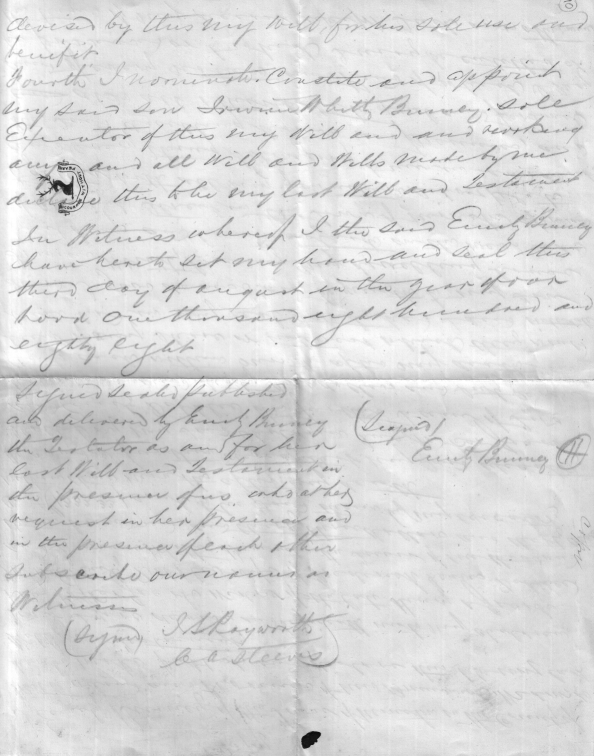 (3)
devised by this my Will for his sole use and
benefit
Fourth I nominate Constite and appoint
my said son Irwin Whitty Binney sole
Executor of this my Will and and revoking
any and all Will and Wills made by me
declare this to be my last Will and Testament
In Witness whereof I the said Emily Binney
have hereto set my hand and seal this
third day of august in the year of our
Lord One thousand eight hundred and
eighty eight
Signed sealed published
and delivered by Emily Binney
the Testator as and for her
last Will and Testament in
the presence of us who at her
request in her presence and
in the presence of each other
subscribe our names as
Witnesses
(Signed)
Emily Binney
(Signed) J S Rayworth
C A Steeves